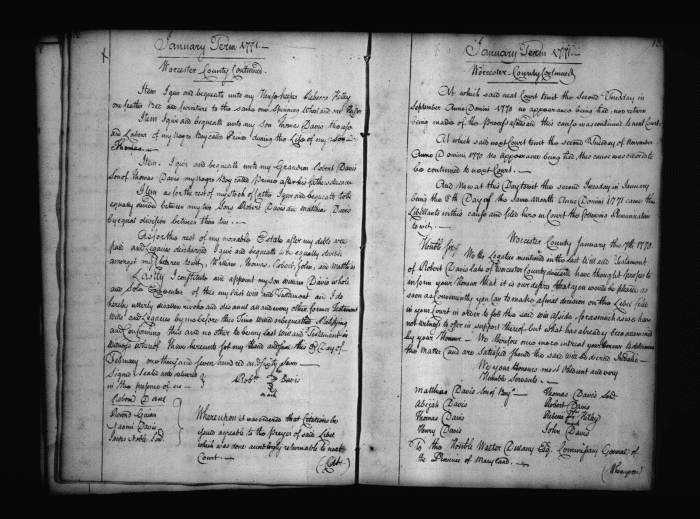 January Term 1771.
Worcester County Continued.
Item I give and bequeath unto my House keeper Rebecca Kelly
one feather Bed and furniture to the same one Spinning Wheel and
Item I give and bequeath unto my son Thomas Davis the use
and Labour of my negro Boy called Prince during the Life of my son
Thomas.
Item. I give and bequeath unto my Grandson Robert Davis
Son of Thomas Davis my negro Boy called Prince after his fathers decease
Item as for the rest of my stock of cattle I give and bequeath to be
equally divided between my two Sons Robert Davis and Matthias Davis
by equal division between them two
As for the rest of my moveable Estate after my debts are
paid and Legacies discharged I give and bequeath to be equally divided
amongst my Robert, John, and Matthias
Lastly I constitute and appoint my son William Davis whole
and Sole Executor of this my last Will and Testament and I do
hereby utterly disallow revoke and disannul all and every other former Testament
Wills and Legacies by me before this Time Willed and bequeathed Ratifying
and Confirming this and no other to be my last Will and Testament in
Witness whereof I have hereunto set my Hand and Seal this Day of
February one thousand seven hundred and
Signed Sealed and delivered
in the presence of us
Robt. Davis
mark
Naomi Davis
James Noble
Whereupon it is ordered that Citations be
issued agreeable to the prayer of said Libel
which was done accordingly returnable to next
Court
January Term 1771.
Worcester County Continued
At which said next Court to wit the Second Tuesday in
September Anno Domini 1770 no appearance being had, nor return
being made of the process aforesaid this cause was continued to next Court.
At which said next Court to wit the second Tuesday of November
Anno Domini 1770 No appearance being had, this cause was ordered to
be continued to next Court.
And Now at this Day to wit the second Tuesday in January
being the 8th Day of the same Month Anno Domini 1771 came the
Libellants in this cause and filed here in Court the following
to wit.
Worcester County January the 7th 1770.
We the Legatees mentioned in the last Will and Testament
of Robert Davis late of Worcester County deceased have thought proper to
inform your Honour that it is our desire that you would be pleased as
soon as conveniently you can to make a final decision on the Libel filed
in your Court in order to set the said will aside, for as much as we have
nothing to offer in support thereof, but what has already been
by your Honour. We therefore once more intreat your Honour to determine
the Matter and are Satisfied
We are your Honours most Obedient and very
Humble Servants.
Matthias Davis Son of
Abijah Davis
Thomas Davis
Henry Davis
Thomas Davis
Robert Davis
John Davis
To the Honble Walter Dulany Esq. Commissary General of
the Province of Maryland.
(Whereupon)